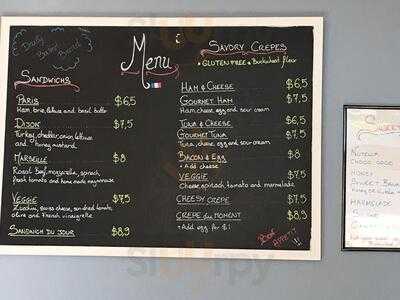 Daily Baked Bread
Menu
Sandwichs
Paris $6,5
Ham, brie, lettuce and basil butter
Dijon $7,5
Turkey, cheddar, onion, lettuce
and honey mustard
Marseille $8
Roast Beef, mozzarella, spinach,
fresh tomato and home made mayonnaise
Veggie $7,5
Zucchini, swiss cheese, sun-dried tomato,
olive and French vinaigrette
Sandwich du jour $8,9
Savory Crepes
Gluten free Buckwheat flour
Ham & Cheese $6,5
Gourmet Ham $7,5
Ham, cheese, egg and sour cream
Tuna & Cheese $6,5
Gourmet Tuna $7,5
Tuna, cheese, egg and sour cream
Bacon & Egg $8
+ Add cheese
Veggie $7,5
Cheese, spinach, tomato and marmalade
Cheesy Crepe $7,5
Crepe du moment $8,9
+ Add egg for $1
Bon Appetit !!
Sweet
Nutella
Choco Coco
Honey
Marmalade